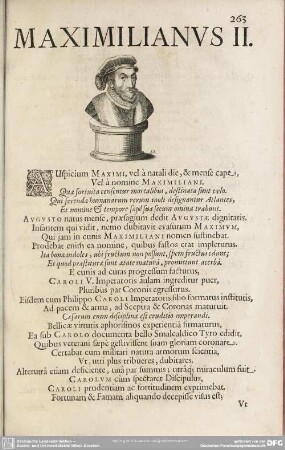 265
MAXIMILIANVS II.
AUspicium MAXIMI, vel à natali die, & mense capta,
Vel à nomine MAXIMILIANI.
Quæ fortuita censentur mortalibus, destinata sunt cælo.
Qui ferendo humanarum rerum moli designantur Atlantes,
Et nomine & tempore sæpe sua secum omina trahunt.
AVGVSTO natus mense, præsagium dedit AVGVSTÆ dignitatis.
Infantem qui vidit, nemo dubitavit evasurum MAXIMVM,
Qui jam in cunis MAXIMILIANI nomen sustinebat.
Prodebat enim ea nomine, quibus fastos erat impleturus.
Ita bona indoles, ubi fructum non possunt, spem fructus edunt;
Et quod præstitura sunt ætate matura, promittunt acerbâ.
E cunis ad curas progressum facturus,
CAROLI V. Imperatoris aulam ingreditur puer,
Pluribus par Coronis egressurus.
Eisdem cum Philippo CAROLI Imperatoris filio formatus institutis,
Ad pacem & arma, ad Sceptra & Coronas maturuit.
Cæsarum enim disciplina est eruditio imperandi.
Bellicæ virtutis aphorismos experientiâ firmaturus,
Ea sub CAROLO documenta bello Smalcaldico Tyro edidit,
Quibus veterani sæpè gestivissent suam gloriam coronare.
Certabat cum militari naturâ armorum scientia,
Vt, uni plus tribueres, dubitares.
Alterutrâ etiam deficiente, unâ par summis; utrâq; miraculum fuit.
CAROLVM cùm spectaret Discipulus,
CAROLI prudentiam ac fortitudinem exprimebat.
Fortunam & Famam aliquando decepisse visus est;
Vt